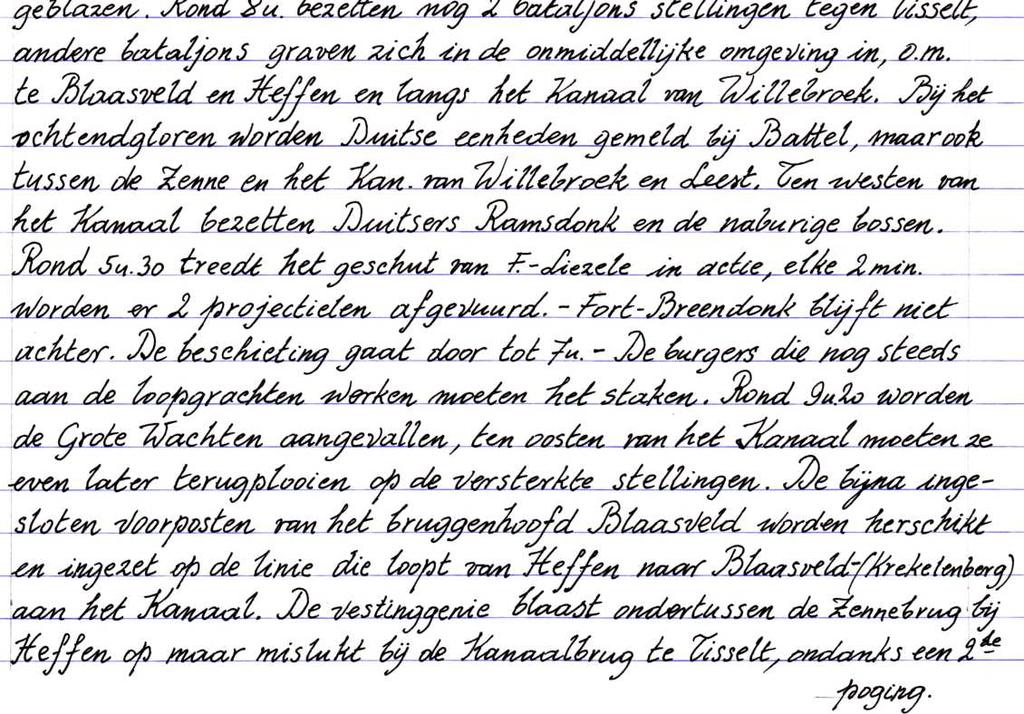 geblazen. Rond 8u. bezetten nog 2 bataljons stellingen tegen Tisselt,
andere bataljons graven zich in de onmiddellijke omgeving in, o.m.
te Blaasveld en Heffen en langs het Kanaal van Willebroek. Bij het
ochtendgloren worden Duitse eenheden gemeld bij Battel, maar ook
tussen de Zenne en het Kan. van Willebroek en Leest. Ten westen van
het Kanaal bezetten Duitsers Ramsdonk en de naburige bossen.
Rond 5u.30 treedt het geschut van F.-Liezele in actie, elke 2 min.
worden er 2 projectielen afgevuurd. - Fort-Breendonk blijft niet
achter. De beschieting gaat door tot 7u. - De burgers die nog steeds
aan de loopgrachten werken moeten het staken. Rond 9u20 worden
de Grote Wachten aangevallen, ten oosten van het Kanaal moeten ze
even later terugplooien op de versterkte stellingen. De bijna inge-
sloten voorposten van het bruggenhoofd Blaasveld worden herschikt
en ingezet op de linie die loopt van Heffen naar Blaasveld-(Krekelenberg)
aan het Kanaal. De vestinggenie blaast ondertussen de Zennebrug bij
Heffen op maar mislukt bij de Kanaalbrug te Tisselt, ondanks een 2de
poging.